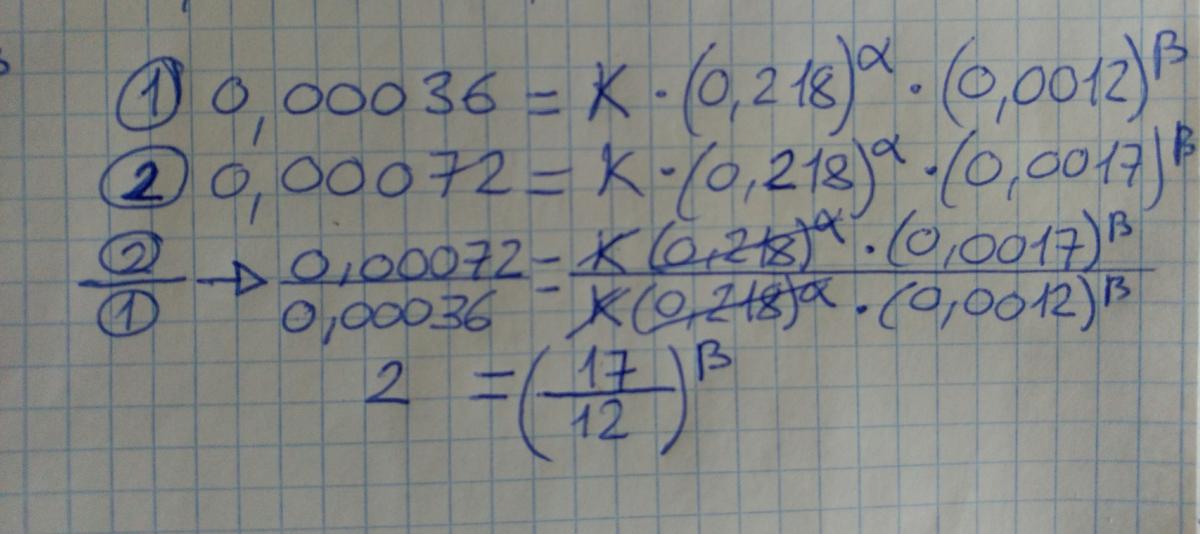 ① 0,00036 = K · (0,218)^α · (0,0012)^β
② 0,00072 = K · (0,218)^α · (0,0017)^β
②/① → 0,00072/0,00036 = K(0,218)^α · (0,0017)^β / K(0,218)^α · (0,0012)^β
2 = (17/12)^β